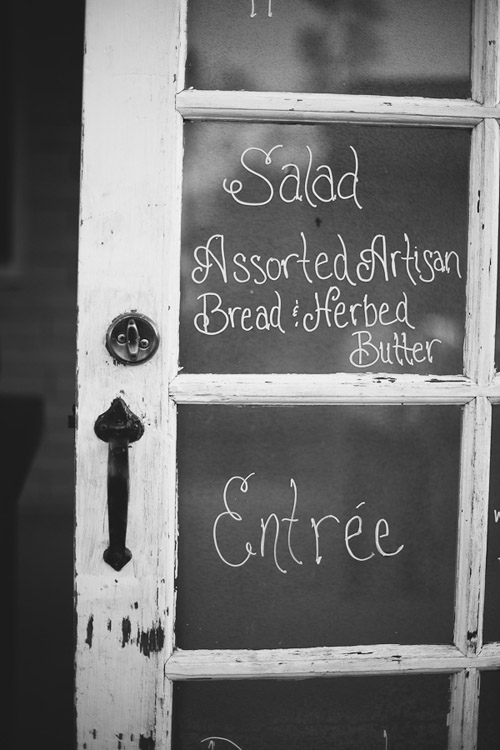 Salad
Assorted Artisan
Bread & Herbed
Butter
Entrée